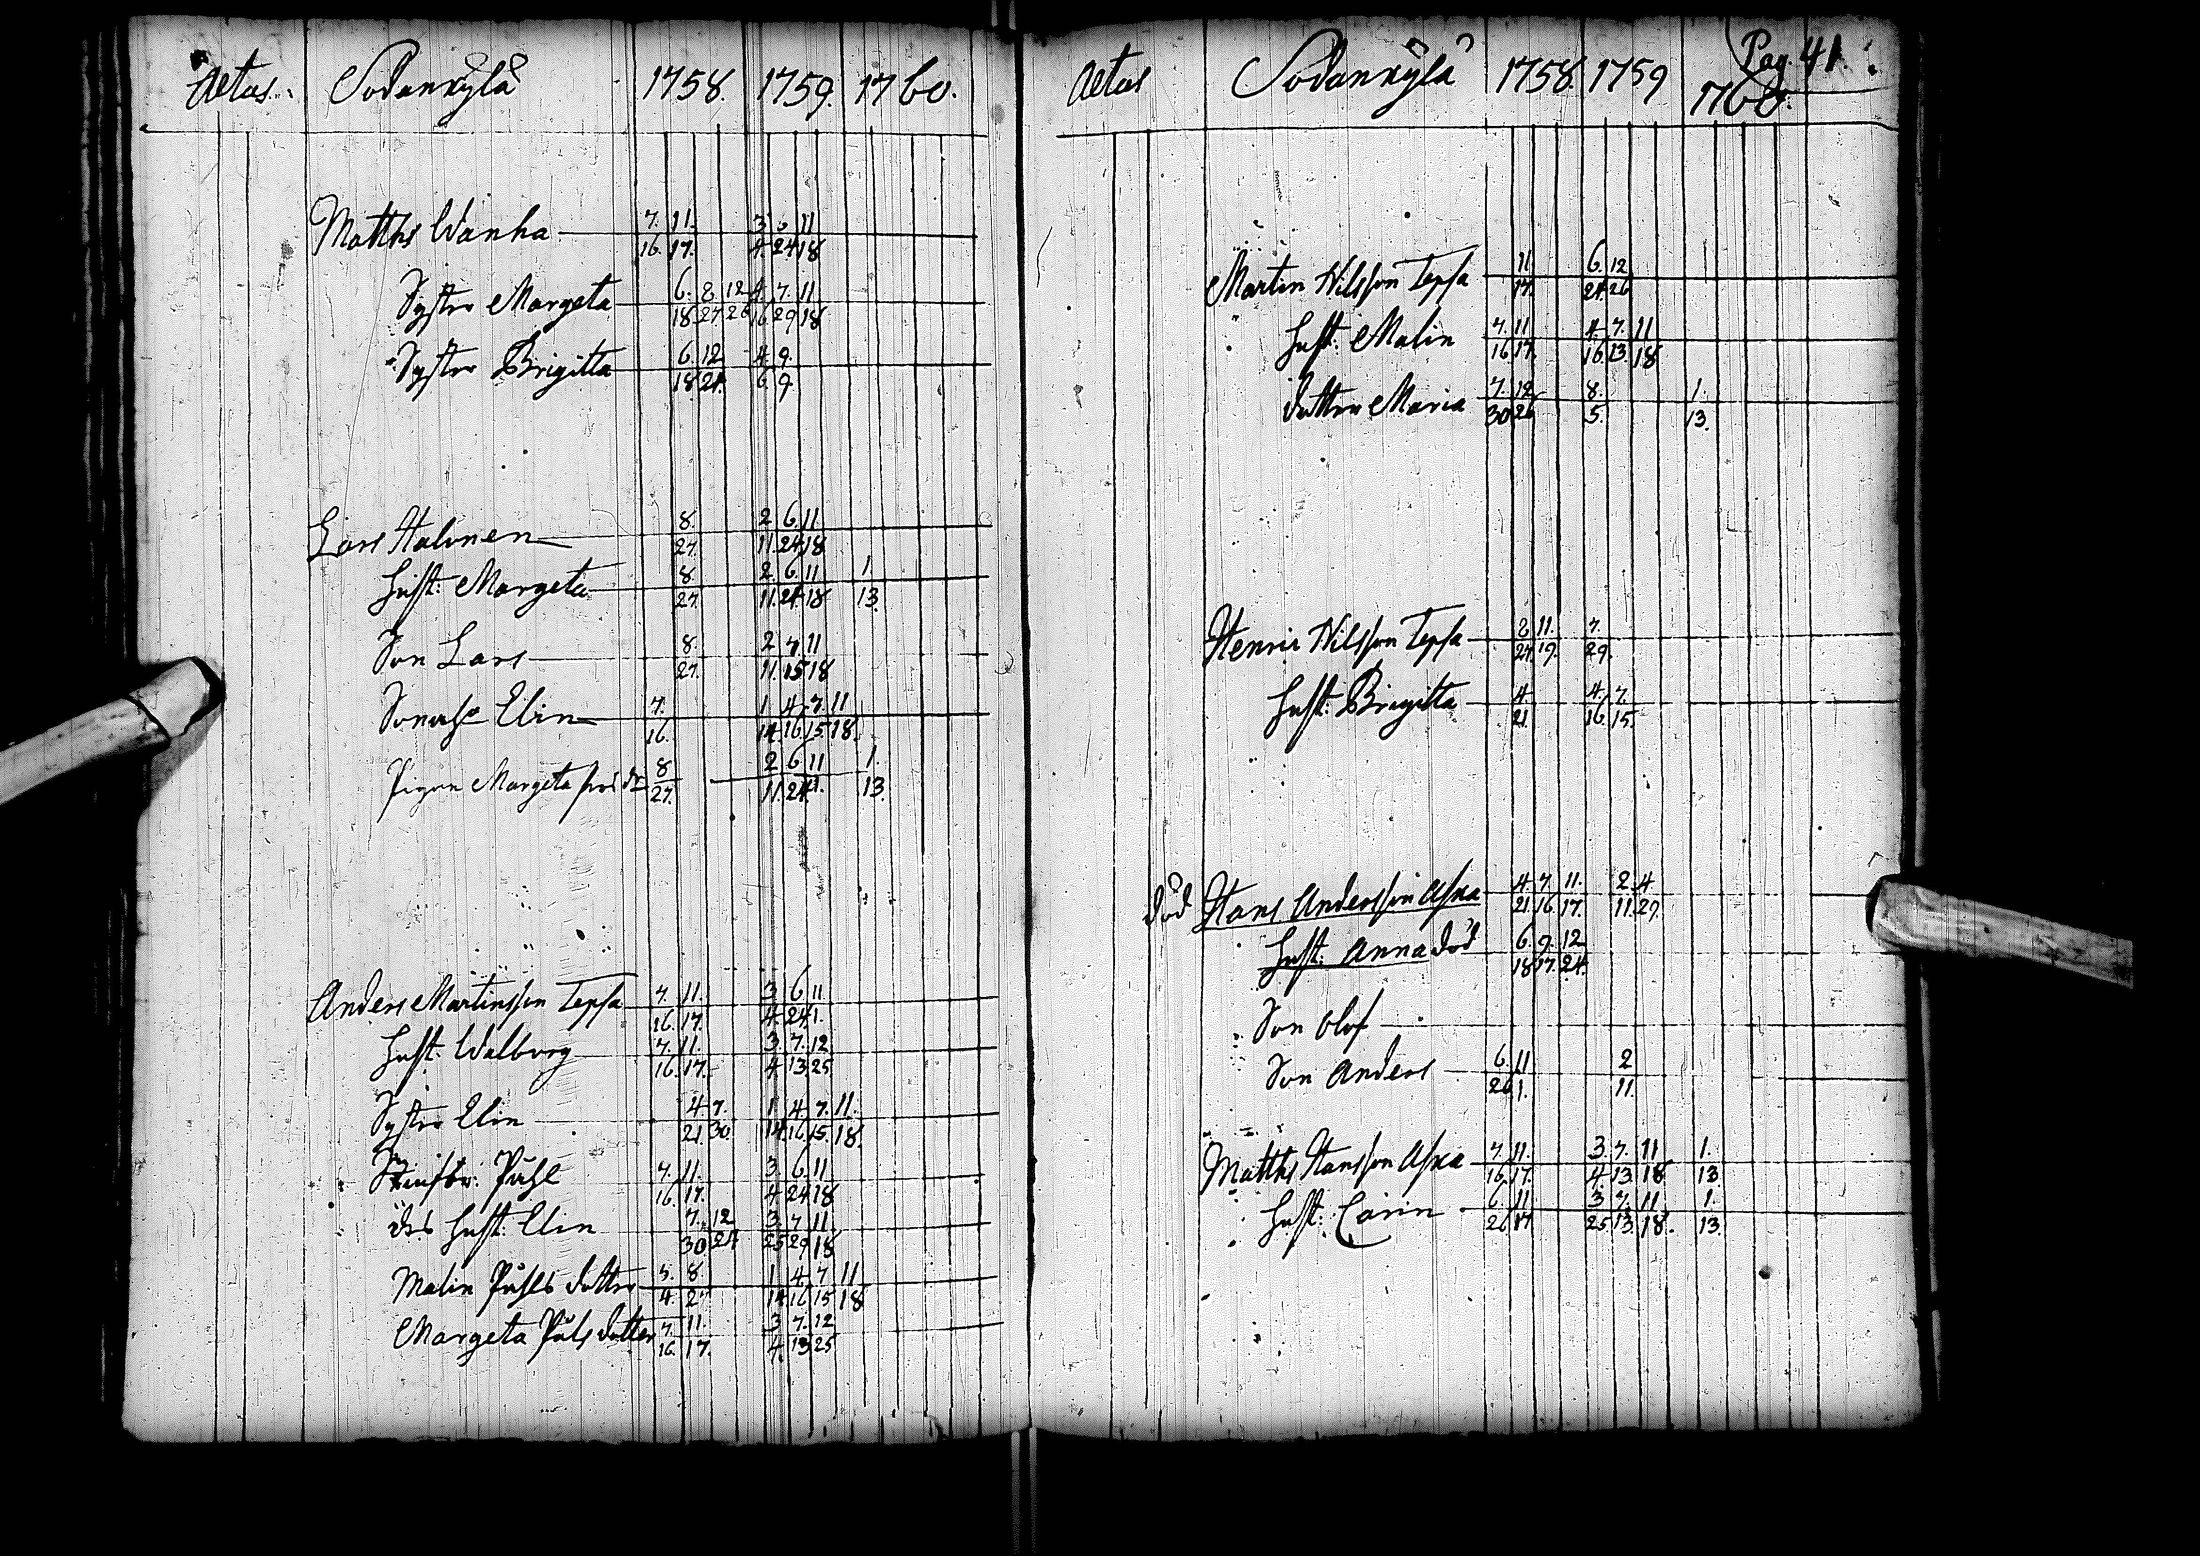 Aetas. Sodankylä 1758. 1759. 1760.
Matths Wanha 7. 11. 3 6 11
16. 17. 4. 24 18
Syster Margeta 6. 8. 12 4. 7. 11
18. 27. 26 16 29 18
Syster Brigitta 6. 12 4. 9.
18. 21. 6 9
Lars Halonen 8. 2 6. 11
27. 11. 24 18
Hust: Margeta 8. 2. 6. 11 1.
27. 11. 24 18 13.
Son Lars 8. 2 7 11
27. 11. 15 18
Elin 7. 1 4. 7. 11
16. 14 16 15 18.
Pigan Margeta 8 2 6 11 1.
27. 11. 24. 1. 13.
Anders Martinsson Tepsa 7. 11. 3. 6. 11
16. 17. 4. 24. 1.
Hust. Walborg 7. 11. 3. 7. 12
16. 17. 4. 13. 25
Syster Elin 4. 7. 1 4. 7. 11.
21. 30. 14. 16 15. 18.
Påhl 7. 11. 3. 6. 11
16. 17. 4 24 18
des Hust. Elin 7. 12 3. 7. 11.
30. 24 25 29 18
Malin Påhls dotter 5. 8. 1 4. 7 11
4. 27 14 16 15 18
Margeta Påls dotter 7. 11. 3. 7. 12
16. 17. 4. 13 25
Pag. 41.
Aetas Sodankylä 1758. 1759 1760.
Martin Nilsson Tepsa 11 6. 12
17. 24. 26
Hust: Malin 7. 11 4. 7. 11
16 17. 16 13. 18
dotter Maria 7. 12 8. 1.
30 26 5. 13.
Henric Nilsson Tepsa 8 11. 7.
27. 19. 29.
Hust: Brigitta 4 4. 7.
21. 16 15.
död Hans Andersson Aska 4 7. 11. 2 4
21. 16 17. 11. 29.
Hust. Anna död 6. 9. 12
18 17. 24.
Son Olof
Son Anders 6. 11 2
26 1. 11.
Matths Hansson Aska 7. 11. 3. 7. 11 1.
16. 17. 4. 13. 18 13.
Hust: Carin 6. 11 3 7. 11 1.
26 17 25 13. 18. 13.